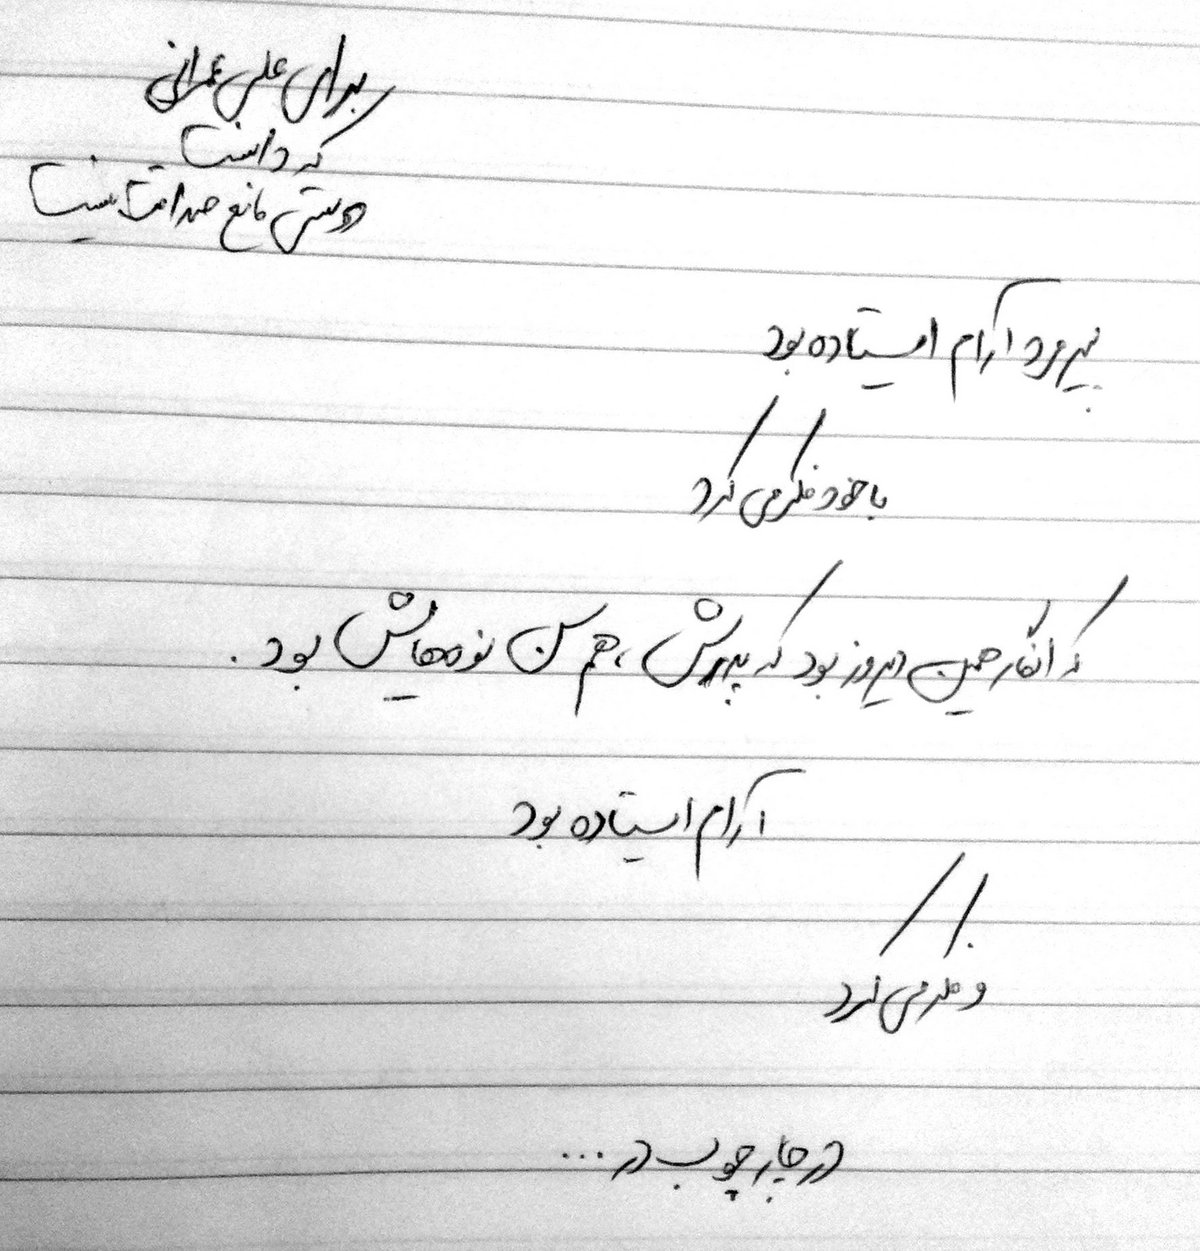 برای علی عمرانی
که دانست
دوستی مانع صداقت نیست
پیرمرد آرام ایستاده بود
با خود فکر می کرد
که انگار همین دیروز بود که پدرش ، هم سن نوه‌هایش بود .
آرام ایستاده بود
و فکر می کرد
در چار چوب در ...